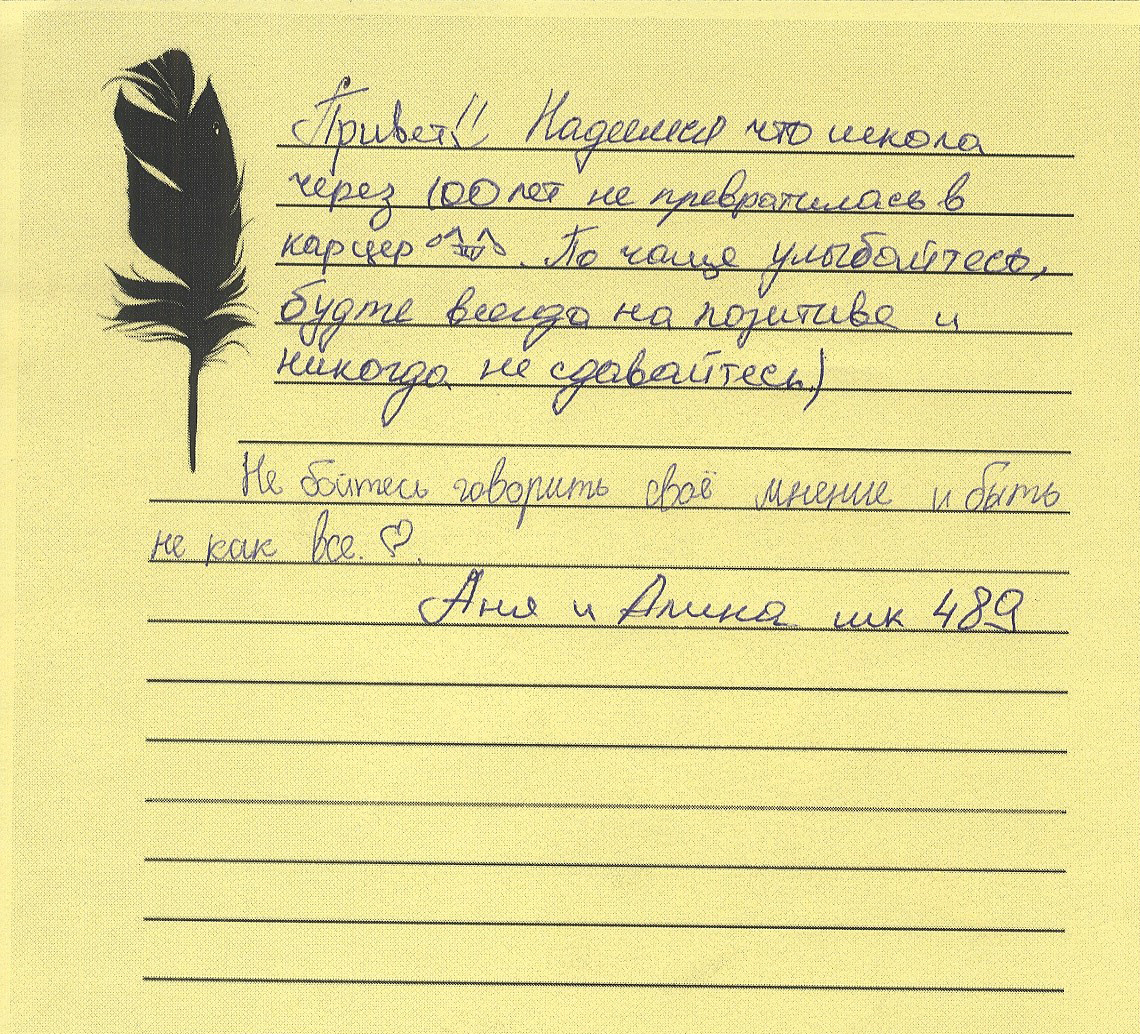 Привет!! Надеемся что школа
через 100 лет не превратилась в
карцер. По чаще улыбайтесь,
будте всегда на позитиве и
никогда не сдавайтесь)
Не бойтесь говорить своё мнение и быть
не как все. ♡.
Аня и Алина шк 489